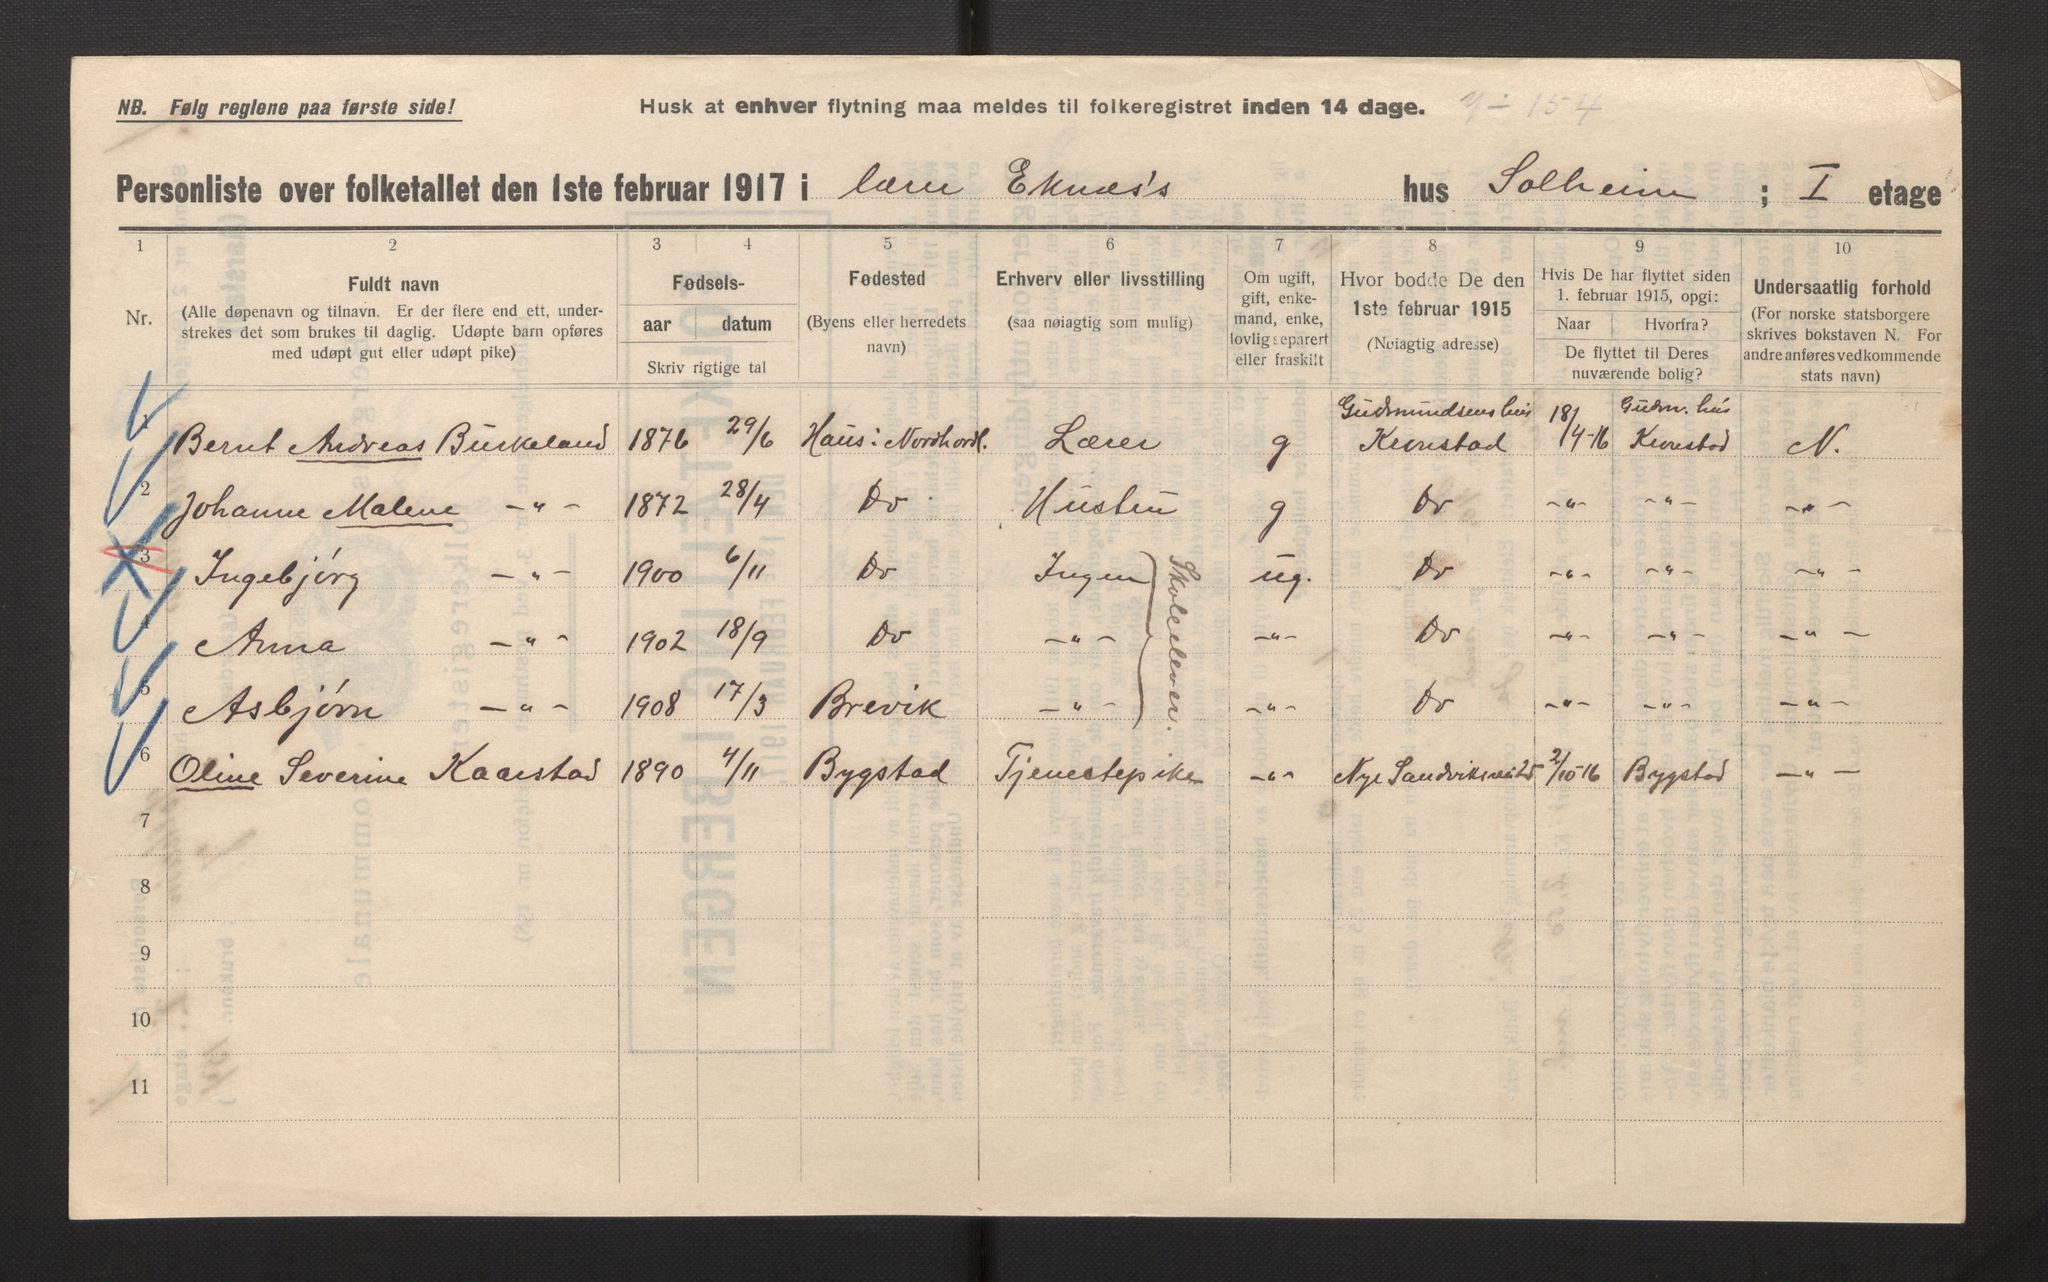 NB. Følg reglene paa første side!
Husk at enhver flytning maa meldes til folkeregistret inden 14 dage.
Personliste over folketallet den 1ste februar 1917 i lærer Eknæs's hus Solheim ; I etage
1 2 3 4 5 6 7 8 9 10
Nr.
Fuldt navn
(Alle døpenavn og tilnavn. Er der flere end ett, under-
strekes det som brukes til daglig. Udøpte barn opføres
med udøpt gut eller udøpt pike)
Fødsels-
aar datum
Skriv rigtige tal
Fødested
(Byens eller herredets
navn)
Erhverv eller livsstilling
(saa nøiagtig som mulig)
Om ugift,
gift, enke-
mand, enke,
lovlig separert
eller fraskilt
Hvor bodde De den
1ste februar 1915
(Nøiagtig adresse)
Hvis De har flyttet siden
1. februar 1915, opgi:
Naar Hvorfra?
De flyttet til Deres
nuværende bolig?
Undersaatlig forhold
(For norske statsborgere
skrives bokstaven N. For
andre anføres vedkommende
stats navn)
1 Bernt Andreas Burkeland 1876 29/6 Haus i Nordhordl. Lærer g Gudmundsens hus Kronstad 18/4-16 Gudm. hus Kronstad N.
2 Johanne Malene -"- 1872 28/4 Do Hustru g Do -"- -"- -"-
3 Ingebjørg -"- 1900 6/11 Do Ingen ug. Do -"- -"- -"-
4 Anna -"- 1902 18/9 Do -"- -"- Do -"- -"- -"-
5 Asbjørn -"- 1908 17/3 Brevik -"- -"- Do -"- -"- -"-
Skoleelever.
6 Oline Severine Kaarstad 1890 4/11 Bygstad Tjenestepike -"- Nye Sandviksvei 2/10-16 Bygstad -"-
7
8
9
10
11